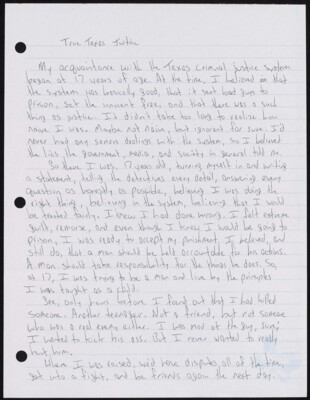 True Texas Justice
My acquaintance with the Texas criminal justice system
began at 17 years of age. At the time, I believed that
the system was basically good, that it sent bad guys to
prison, set the innocent free, and that there was a such
thing as justice. It didn't take too long to realize how
naive I was. Maybe not naive, but ignorant for sure. I'd
never had any serious dealings with the system, so I believed
the lies the government, media, and society in general told me.
So there I was, 17 years old, turning myself in and writing
a statement, telling the detectives every detail, answering every
question as honestly as possible, believing I was doing the
right thing, believing in the system, believing that I would
be treated fairly. I knew I had done wrong. I felt extreme
guilt, remorse, and even though I knew I would be going to
prison, I was ready to accept my punishment. I believed, and
still do, that a man should be held accountable for his actions.
A man should take responsibility for the things he does. So,
at 17, I was trying to be a man and live by the principles
I was taught as a child.
See, only hours before I found out that I had killed
someone. Another teenager. Not a friend, but not someone
who was a real enemy either. I was mad at the guy, sure;
I wanted to kick his ass. But I never wanted to really
hurt him.
Where I was raised, we'd have disputes all of the time,
get into a fight, and be friends again the next day.